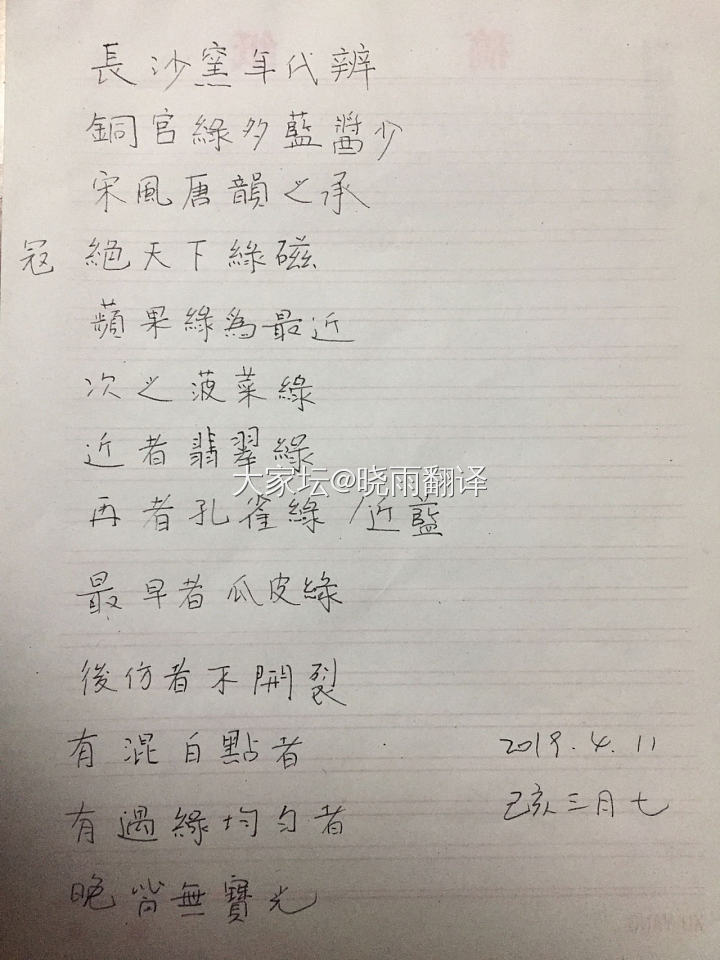 長沙窯年代辨
銅官綠多藍醬少
宋風唐韻之承
冠絕天下綠磁
蘋果綠為最近
次之菠菜綠
近者翡翠綠
大家坛@晓雨翻译
再者孔雀綠/近藍
最早者瓜皮綠
後仿者不開裂
有混白點者
2019.4.11
有過綠均勻者
己亥三月七
晚皆無寶光